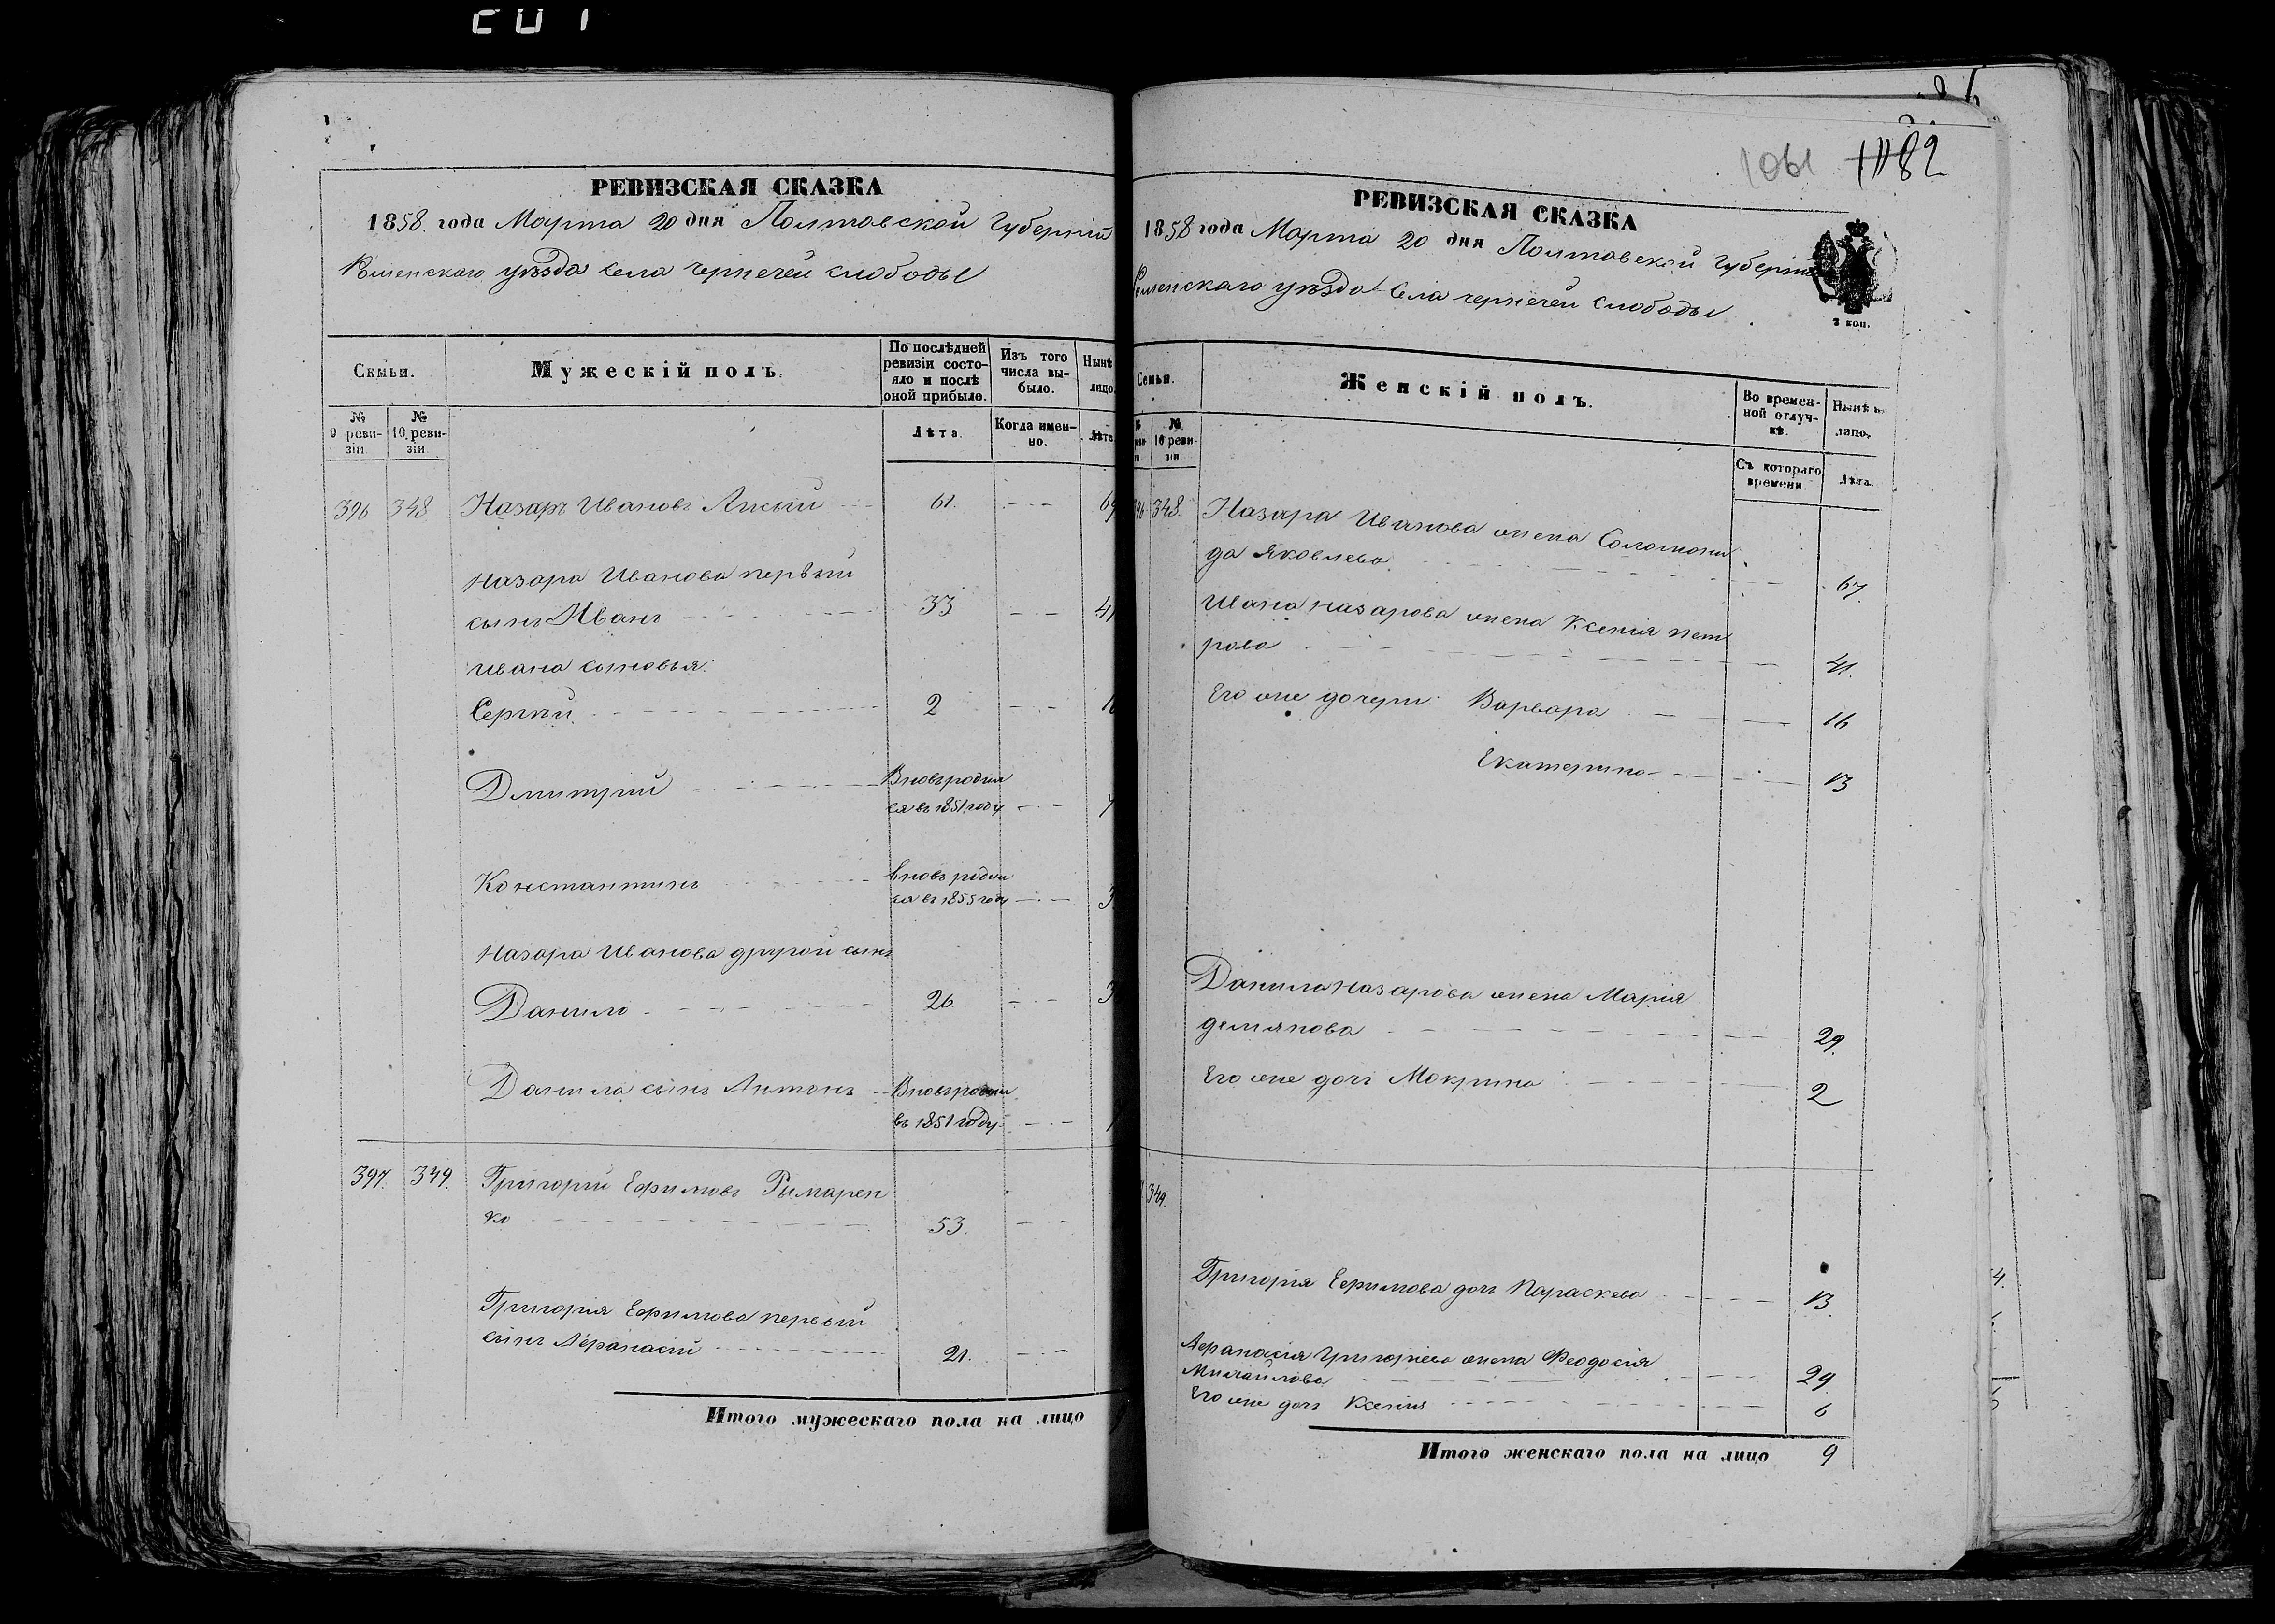 1061 82
РЕВИЗСКАЯ СКАЗКА
1858. года Марта 20 дня Полтавской Губерніи
Роменскаго уѣзда села чернечей слободы
Семьи.
Мужескій полъ.
По послѣдней ревизіи состояло и послѣ оной прибыло.
Изъ того числа выбыло.
Нынѣ
лицо
№ 9 ревизіи
№ 10 ревизіи
Лѣта.
Когда именно.
Лѣта
396 348 Назаръ Ивановъ 61.
Назара Иванова первый
сынъ Иванъ 33 41
Ивана сыновья:
Сергѣй 2
Дмитрій Вновь родил
ся въ 1851 году 7
Константинъ вновь родил
ся въ 1855 году 3
Назара Иванова другой сынъ
Данило 26
Данила сынъ Антонъ Вновь родил
въ 1851 году
397. 349. Григорій Ефимовъ Рымарен
ко 53.
Григорія Ефимова первый
сынъ Афанасій 21.
Итого мужескаго пола на лицо
РЕВИЗСКАЯ СКАЗКА
1858 года Марта 20 дня Полтавской Губерніи
Роменскаго уѣзда села чернечей слободы
2 коп.
Семьи.
Женскій полъ.
Во временной отлучкѣ.
Нынѣ на лицо.
№ 10 ревизіи
Съ котораго времени.
Лѣта.
348. Назара Иванова жена Соломони
да Яковлева 67.
Ивана Назарова жена Ксенія пет
рова 41.
Его же дочери: Варвара 16
Екатерина 13
Данила Назарова жена Марія
демянова 29.
Его же дочь Мокрина 2
349.
Григорія Ефимова дочь Параскева 13.
Афанасія Григорьева жена Феодосія
Михайлова 29.
Его же дочь Ксенія 6
Итого женскаго пола на лицо 9